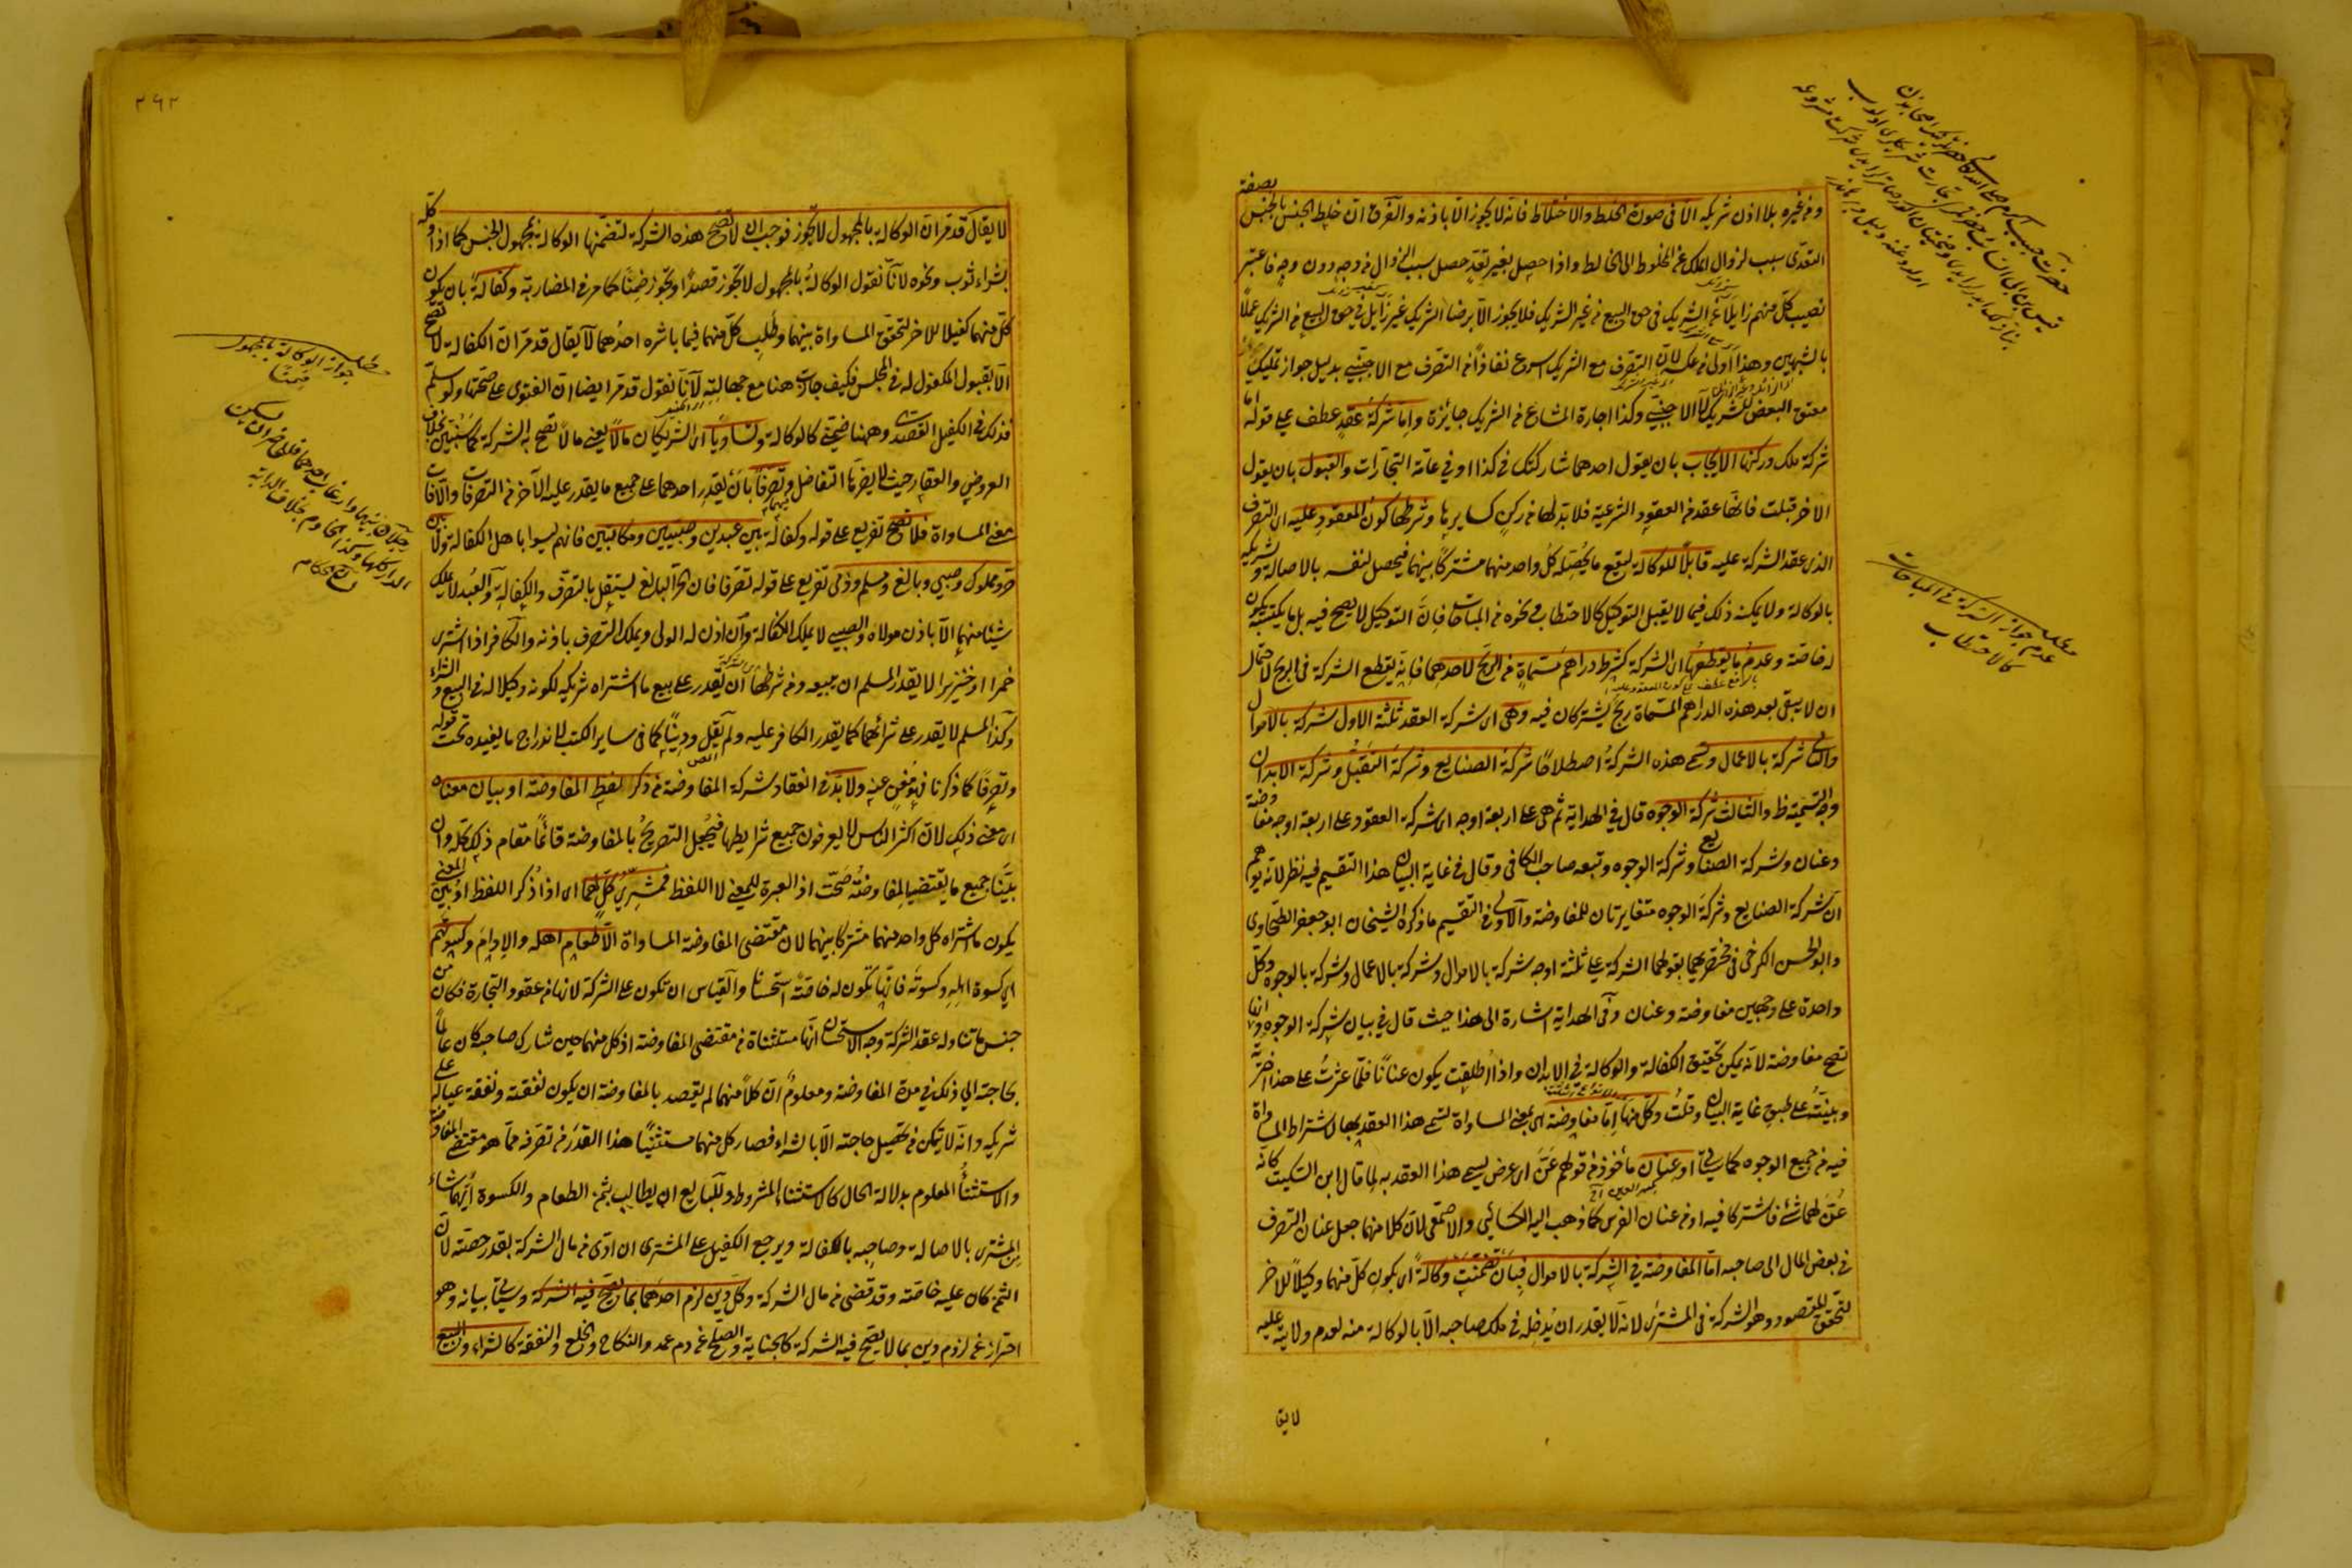 وفي غيره بلا اذن شريكه الا في صورة الخلط والاختلاط فانه لا يجوز الا باذنه والفرق ان خلط الجنس بالجنس بصفة
التعدى سبب لزوال الملك عن المخلوط الى الخالط واذا حصل بغير تعد حصل سبب الزوال من وجه دون وجه فاعتبر
نصيب كل منهم زايلا عن الشريك في حق البيع من غير الشريك فلا يجوز الا برضا الشريك غير زايل في حق البيع من الشريك عملا
بالشبهين وهذا اولى من عكسه لان التصرف مع الشريك اسرع نفاذا من التصرف مع الاجنبي بدليل جواز تمليك
معتق البعض للشريك لا الاجنبي وكذا اجارة المشاع من الشريك جايزة واما شركة عقد عطف على قوله اما
شركة ملك وركنها الايجاب بان يقول احدهما شاركتك في كذا او في عامة التجارات والقبول بان يقول
الاخر قبلت فانها عقد من العقود الشرعية فلا بد لها من ركن كسايرها وشرطها كون المعقود عليه اى التصرف
الذى عقد الشركة عليه قابلا للوكالة ليقع ما يحصله كل واحد منهما مشتركا بينهما فيحصل لنفسه بالاصالة ولشريكه
بالوكالة ولا يمكنه ذلك فيما لا يقبل التوكيل كالاحتطاب ونحوه من المباحات فان التوكيل لا يصح فيه بل ما يكتسبه يكون
له خاصة وعدم ما يقطعها اى الشركة كشرط دراهم مسماة من الربح لاحدهما فانه يقطع الشركة في الربح لاحتمال
ان لا يبقى بعد هذه الدراهم المسماة ربح يشتركان فيه وهى اى شركة العقد ثلثة الاول شركة بالاموال
والثانى شركة بالاعمال وتسمى هذه الشركة اصطلاحا شركة الصنايع وشركة التقبل وشركة الابدان
وجه التسمية ظ والثالث شركة الوجوه قال في الهداية ثم هى على اربعة اوجه اى شركة العقود على اربعة اوجه مفاوضة
وعنان وشركة الصنايع وشركة الوجوه وتبعه صاحب الكافى وقال في غاية البيان هذا التقسيم فيه نظر لانه يوهم
ان شركة الصنايع وشركة الوجوه متغايرتان للمفاوضة والاولى في التقسيم ما ذكره الشيخان ابو جعفر الطحاوى
وابو الحسن الكرخى في مختصريهما بقولهما الشركة على ثلثة اوجه شركة بالاموال وشركة بالاعمال وشركة بالوجوه وكل
واحدة على وجهين مفاوضة وعنان وفى الهداية اشارة الى هذا حيث قال في بيان شركة الوجوه وانها
تصح مفاوضة لانه يمكن تحقيق الكفالة والوكالة في الابدال واذا اطلقت يكون عنانا فلما عثرت على هذا اخترته
وبينته على طبق غاية البيان وقلت وكل منها اما مفاوضة اى بمعنى المساواة تسمى هذا العقد بها لاشتراط المساواة
فيه من جميع الوجوه كما سيأتى او عنان مأخوذ من قولهم عن اى عرض يسمى هذا العقد به لما قال ابن السكيت كانه
عن لهما شئ فاشتركا فيه او من عنان الفرس كما ذهب اليه الكسائى والاصمعى لان كلا منهما جعل عنان التصرف
في بعض المال الى صاحبه اما المفاوضة في الشركة بالاموال فبان تضمنت وكالة اى يكون كل منهما وكيلا للاخر
ليتحقق المقصود وهو الشركة في المشترى لانه لا يقدر ان يدخله في ملك صاحبه الا بالوكالة منه لعدم ولايته عليه
لا يق
مطلب
عدم جواز الشركة في المباحات
كالاحتطاب
٢٦٢
لا يقال قد مر ان الوكالة بالمجهول لا تجوز فوجب ان لا تصح هذه الشركة لتضمنها الوكالة بمجهول الجنس كما اذا وكله
بشراء ثوب ونحوه لانا نقول الوكالة بالمجهول لا تجوز قصدا وتجوز ضمنا كما مر في المضاربة وكفالة بان يكون
كل منهما كفيلا للاخر لتحقق المساواة بينهما وطلب كل منهما فيما باشره احدهما لا يقال قد مر ان الكفالة لا تصح
الا بقبول المكفول له في المجلس فكيف جازت هنا مع جهالته لانا نقول قد مر ايضا ان الفتوى على صحتها ولو سلم
فذلك في الكفيل القصدى وههنا ضمنى كالوكالة وتساويا اى الشريكان مالا يعنى مالا تصح به الشركة كما سنبين بخلاف
العروض والعقار حيث لا يضرها التفاضل وتصرفا بان يقدر احدهما على جميع ما يقدر عليه الآخر من التصرفات والا فات
معنى المساواة فلا تصح تفريع على قوله وكفالة بين عبدين وصبيين ومكاتبين فانهم ليسوا باهل الكفالة ولا بين
حر ومملوك وصبى وبالغ ومسلم وذمى تفريع على قوله تصرفا فان الحر البالغ يستقل بالتصرف والكفالة والعبد لا يملك
شيئا منهما الا باذن مولاه والصبى لا يملك الكفالة وان اذن له الولى ويملك التصرف باذنه والكافر اذا اشترى
خمرا او خنزيرا لا يقدر المسلم ان يبيعه ومن شرطها ان يقدر على بيع ما اشتراه شريكه لكونه وكيلا له في البيع والشراء
وكذا المسلم لا يقدر على شرائهما كما يقدر الكافر عليه ولم يقل ودينا كما في ساير الكتب لاندراج ما يفيده تحت قوله
وتصرفا كما ذكرنا فهو مغن عنه ولا بد في انعقاد شركة المفاوضة من ذكر لفظ المفاوضة او بيان معناه
اى معنى ذلك لان اكثر الناس لا يعرفون جميع شرايطها فيجعل التصريح بالمفاوضة قائما مقام ذلك كله وان
بينا جميع ما يقتضيه المفاوضة صحت اذ العبرة للمعنى لا اللفظ فمشرى كل لهما اى اذا ذكر اللفظ او بين المعنى
يكون ما اشتراه كل واحد منهما مشتركا بينهما لان مقتضى المفاوضة المساواة الا طعام اهله والادام وكسوتهم
اى كسوة اهله وكسوته فانها تكون له خاصة استحسانا والقياس ان تكون على الشركة لانها من عقود التجارة فكان من
جنس ما تناوله عقد الشركة وجه الاستحسان انها مستثناة من مقتضى المفاوضة اذ كل منهما حين شارك صاحبه كان عالما
بحاجته الى ذلك في مدة المفاوضة ومعلوم ان كلا منهما لم يقصد بالمفاوضة ان يكون نفقته ونفقة عياله على
شريكه وانه لا يتمكن من تحصيل حاجته الا بالشراء فصار كل منهما مستثنيا هذا القدر من تصرفه مما هو مقتضى المفاوضة
والاستثناء المعلوم بدلالة الحال كالاستثناء المشروط وللبايع ان يطالب بثمن الطعام والكسوة ايهما شاء
المشترى بالاصالة وصاحبه بالكفالة ويرجع الكفيل على المشترى ان ادى من مال الشركة بقدر حصته لان
الثمن كان عليه خاصة وقد قضى من مال الشركة وكل دين لزم احدهما بما تصح فيه الشركة وسيأتى بيانه وهو
احتراز عن لزوم دين بما لا يصح فيه الشركة كالجناية والصلح عن دم عمد والنكاح والخلع والنفقة كالشراء والبيع
مطلب
جواز الوكالة بالمجهول
ضمنا